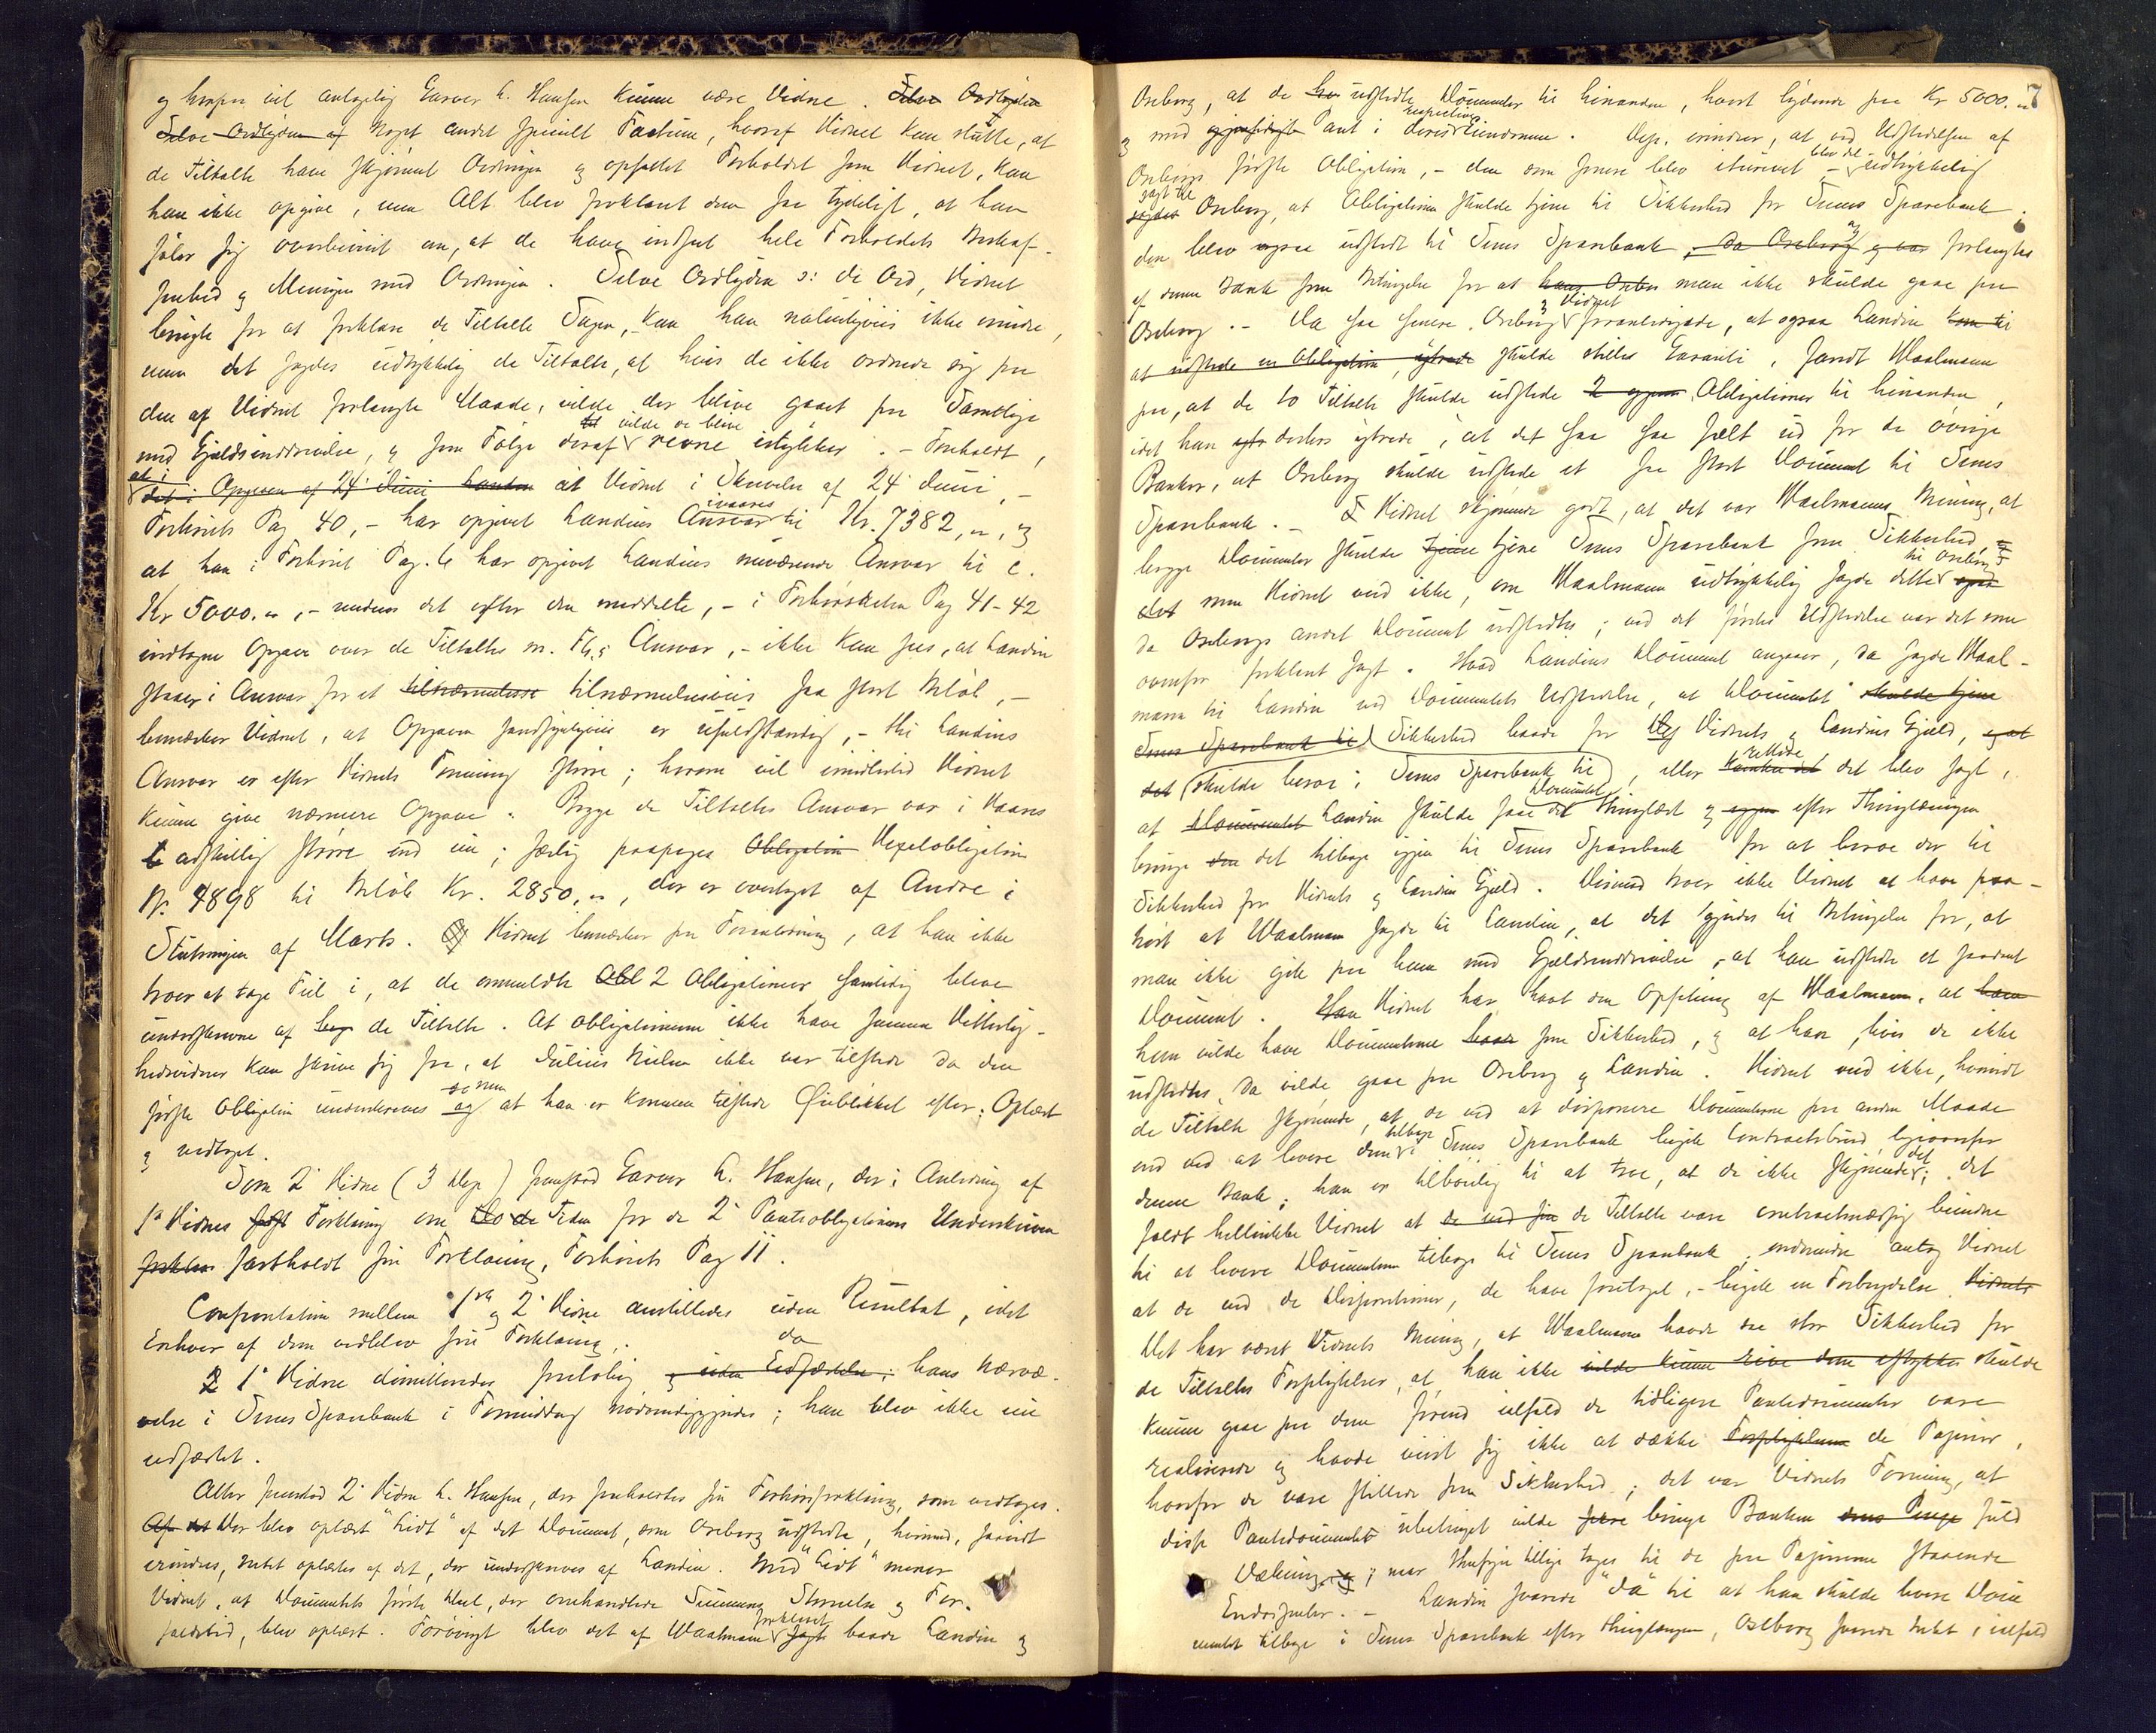 og hvorfor vil antagelig Garver L. Hansen kunne være Vidne. Selve Ordlyden
Selve Ordlyden af Noget andet specielt Factum, hvoraf Vidnet kan slutte, at
de Tiltalte have skjønnet Ordningen og opfattet Forholdet som Vidnet, kan
han ikke opgive, men Alt blev forklaret dem saa tydeligt, at han
føler sig overbevist om, at de have indseet hele Forholdets Beskaf-
fenhed og Meningen med Ordningen. Selve Ordlyden o: de Ord, Vidnet
brugte for at forklare de Tiltalte Sagen, kan han naturligviis ikke erindre,
men det sagdes udtrykkelig de Tiltalte, at hvis de ikke ordnede sig paa
den af Vidnet forlangte Maade, vilde der blive gaaet paa Samtlige
med Gjældsinddrivelse, og som Følge deraf vilde de blive revne istykker. - Foreholdt,
at i
det i Opgaven af 24' Juni Landin at Vidnet i Skrivelse af 24' Juni, -
Forhørets Pag 40, - har opgivet Landins Ansvar ivaares til Kr. 7382, "", og
at han i Forhøret Pag. 6 har opgivet Landins nuværende Ansvar til c.
Kr 5000. "", - medens det efter den meddelte, - i Forhørsakten Pag 41-42
indtagne Opgave over de Tiltaltes m. Fl.s Ansvar, - ikke kan sees, at Landin
staaer i Ansvar for et tilnærmelsesv tilnærmelsesviis saa stort Beløb, -
bemærker Vidnet, at Opgaven sandsynligviis er ufuldstændig, - thi Landins
Ansvar er efter Vidnets Formening større; herom vil imidlertid Vidnet
kunne give nærmere Opgave. Begge de Tiltaltes Ansvar var i Vaares
adskillig større end nu; særlig paapeges Obligation Vexelobligation
No. 4898 til Beløb Kr. 2850, "", der er overtaget af Andre i
Slutningen af Marts. Vidnet bemærker paa Foranledning, at han ikke
troer at tage Feil i, at de ommeldte Obl 2 Obligationer samtidig bleve
underskrevne af beg de Tiltalte. At Obligationerne ikke have samme Vitterlig-
hedsvidner kan skrive sig fra, at Julius Nielsen ikke var tilstede da den
første Obligation underskreves og men at han er kommen tilstede Øieblikket efter. Oplæst
og vedtaget.
Som 2' Vidne (3 Dep) fremstod Garver L. Hansen, der i Anledning af
1' Vidnes Forklaring om de Tiden for de 2' Panteobligationers Underskrivn
forklar fastholdt sin Forklaring, Forhørets Pag 11.
Confrontation mellem 1ste og 2' Vidne anstilledes uden Resultat, idet
Enhver af dem vedblev sin Forklaring.
2 1' Vidne dimitteredes foreløbig og uden Edfæstelse; da hans Nærvæ-
relse i Sems Sparebank i Formiddag nødvendiggjordes; han blev ikke nu
edfæstet.
Atter fremstod 2' Vidne L. Hansen, der foreholdtes sin Forhørsforklaring, som vedtages.
Af det Der blev oplæst "Lidt" af det Document, som Oseberg udstedte, hvorimod, saavidt
erindres, Intet oplæstes af det, der underskreves af Landin. Med "Lidt" mener
Vidnet, at Documentets første Deel, der omhandlede Summens Størrelse og For-
faldstid, blev oplæst. Forøvrigt blev det af Waalmann forklaret sagt baade Landin og
7
Oseberg, at de udstedte Documenter til hinanden, hvert lydende paa Kr 5000. ""
og med gjensidigt Pant i deres respective Eiendomme. Dep. erindrer, at ved Udstedelsen af
Osebergs første Obligation, - den som senere blev itureven - blev det udtrykkelig
sagt til
sagdes Oseberg, at Obligationen skulde tjene til Sikkerhed for Sems Sparebank.
den blev ogsaa udstedt til Sems Sparebank, da Oseberg og var og forlangtes
af denne Bank som Betingelse for at hans Oseber man ikke skulde gaae paa
Oseberg. - Da saa senere Oseberg og Vidnet foranledigede, at ogsaa Landin kom til
at udstede en Obligation, ytrede skulde stille Garanti, fandt Waalmann
paa, at de to Tiltalte skulde udstede 2 gjen Obligationer til hinanden,
idet han derhos ytrede, at det saa saa fælt ud for de øvrige
Banker, at Oseberg skulde udstede et saa stort Document til Sems
Sparebank. - Vidnet skjønnede godt, at det var Waalmanns Mening, at
begge Documenter skulde tjene tjene Sems Sparebank som Sikkerhed,
det men Vidnet veed ikke, om Waalmann udtrykkelig sagde dette til Oseberg
da Osebergs andet Document udstedtes; ved det førstes Udstedelse var det som
ovenfor forklaret sagt. Hvad Landins Document angaaer, da sagde Waal-
mann til Landin ved Documentets Udstedelse, at Documentet skulde tjene
Sems Sparebank til Sikkerhed baade for Vidnets og Landins Gjæld, og at
det skulde beroe i Sems Sparebank til, eller rettere det blev sagt,
at Documentet Landin skulde faae det Document thinglæst og igjen efter Thinglæsningen
bringe den det tilbage igjen til Sems Sparebank for at beroe der til
Sikkerhed for Vidnets og Landins Gjæld. Derimod troer ikke Vidnet at have paa-
hørt at Waalmann sagde til Landin, at det gjordes til Betingelse for, at
man ikke gik paa ham med Gjældsinddrivelse, at han udstedte et saadant
Document. Han Vidnet har havt den Opfatning af Waalmann, at han
han vilde have Documenterne som Sikkerhed, og at han, hvis de ikke
udstedtes, da vilde gaae paa Oseberg og Landin. Vidnet veed ikke, hvorvidt
de Tiltalte skjønnede, at de ved at disponere Documenterne paa anden Maade
end ved at levere dem tilbage i Sems Sparebank begik Contractsbrud ligeoverfor
denne Bank; han er tilbøielig til at troe, at de ikke skjønnede det; det
faldt hellerikke Vidnet at de ved sin de Tiltalte vare contractmæssig bundne
til at levere Documenterne tilbage til Sems Sparebank, endmindre antog Vidnet
at de ved de Dispositioner, de have foretaget, - begik en Forbrydelse. Vidnets
Det har været Vidnets Mening, at Waalmann havde saa stor Sikkerhed for
de Tiltaltes Forpligtelser, at han ikke vilde kunne rive dem istykker skulde
kunne gaae paa dem førend ialfald de tidligere Pantedocumenter vare
realiserede og havde viist sig ikke at dække Forpligtelserne de Papirer,
hvorfor de vare stillede som Sikkerhed; det var Vidnets Formening, at
disse Pantedocumenter ubetinget vilde bringe Banken sine Penge fuld
Dækning, og; naar Hensyn tillige toges til de paa Papirerne staaende
Endossenter. - Landin svarede "Ja" til at han skulde levere Docu
mentet tilbage i Sems Sparebank efter Thinglæsningen, Oseberg svarede Intet, ialfald